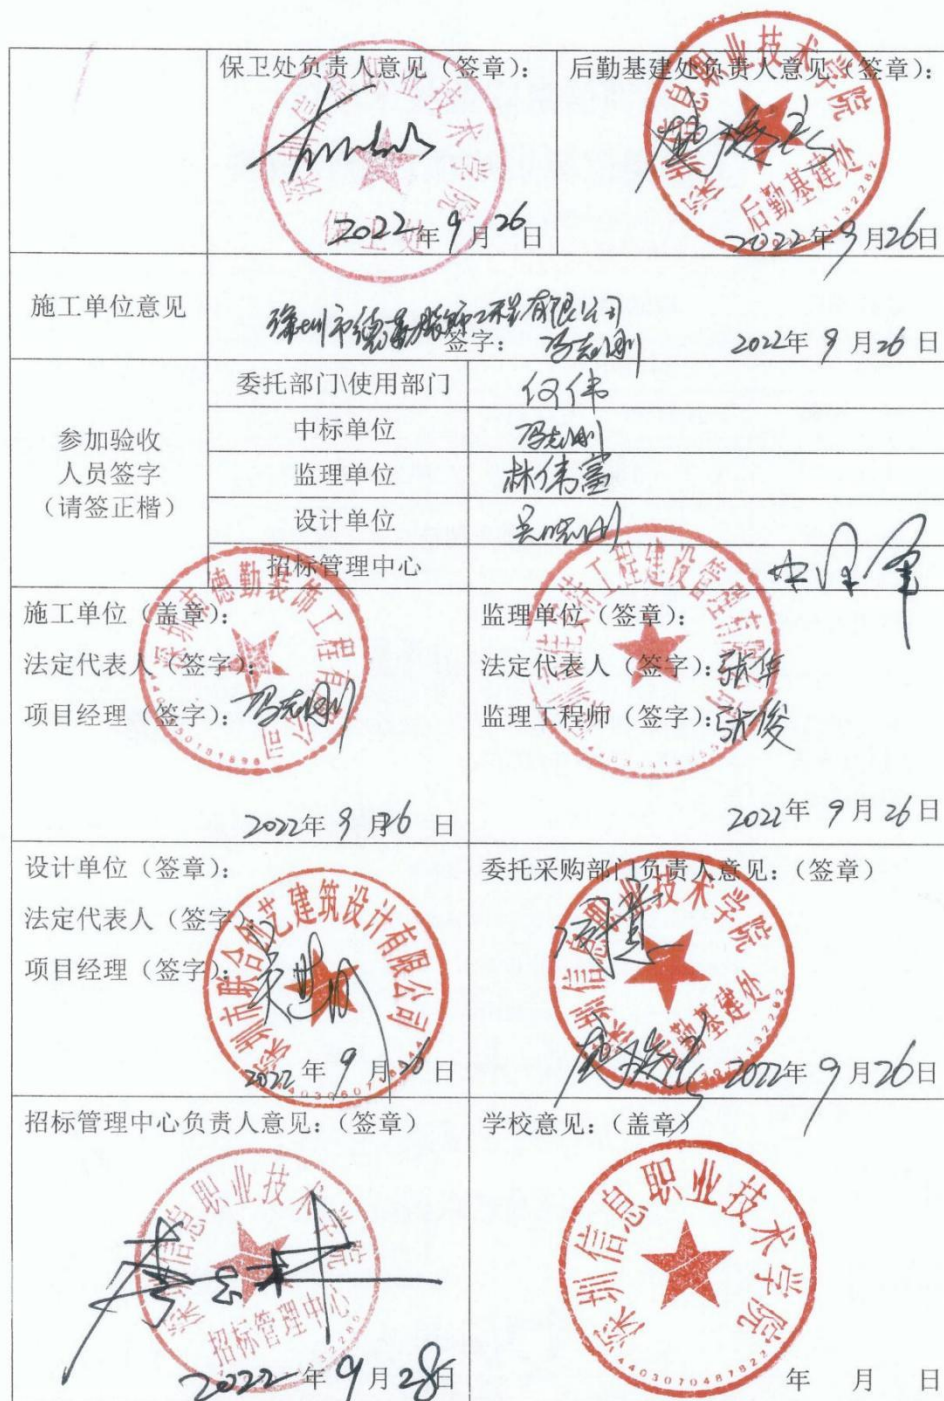 保卫处负责人意见（签章）：
深圳信息职业技术学院
保卫处
2022年9月26日
后勤基建处负责人意见（签章）：
深圳信息职业技术学院
后勤基建处
2022年9月26日
施工单位意见
深圳市德勤装饰工程有限公司
签字： 冯志刚 2022年9月26日
参加验收
人员签字
（请签正楷）
委托部门\使用部门 何伟
中标单位 冯志刚
监理单位 林伟富
设计单位
招标管理中心
施工单位（盖章）：
法定代表人（签字）：
项目经理（签字）：冯志刚
深圳市德勤装饰工程有限公司
2022年9月26日
监理单位（签章）：
法定代表人（签字）：张华
监理工程师（签字）：张俊
工程建设管理有限公司
2022年9月26日
设计单位（签章）：
法定代表人（签字）：
项目经理（签字）：
深圳市联合创艺建筑设计有限公司
2022年9月26日
委托采购部门负责人意见：（签章）
深圳信息职业技术学院
后勤基建处
2022年9月26日
招标管理中心负责人意见：（签章）
深圳信息职业技术学院
招标管理中心
2022年9月28日
学校意见：（盖章）
深圳信息职业技术学院
4403070487827
年 月 日